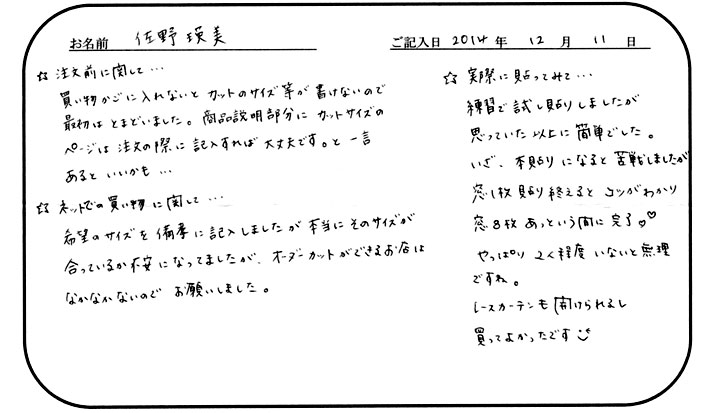 お名前 佐野 瑛美
ご記入日 2014 年 12 月 11 日
☆ 注文前に関して…
買い物かごに入れないと カットのサイズ等が 書けないので
最初は とまどいました。商品説明部分に カットサイズの
ページは 注文の際に 記入すれば 大丈夫です。と 一言
あると いいかも …
☆ ネットでの 買い物に関して…
希望のサイズを 備考に記入しましたが 本当に そのサイズが
合っているか不安に なってましたが、オーダーカットができるお店は
なかなかないので お願いしました。
☆ 実際に貼ってみて…
練習で試し貼りしましたが
思っていた以上に簡単でした。
いざ、本貼りになると 苦戦しましたが
窓1枚貼り終えると コツがわかり
窓8枚 あっという間に完了♡♡
やっぱり 2人程度 いないと無理
ですね。
レースカーテンも 開けられるし
買ってよかったです